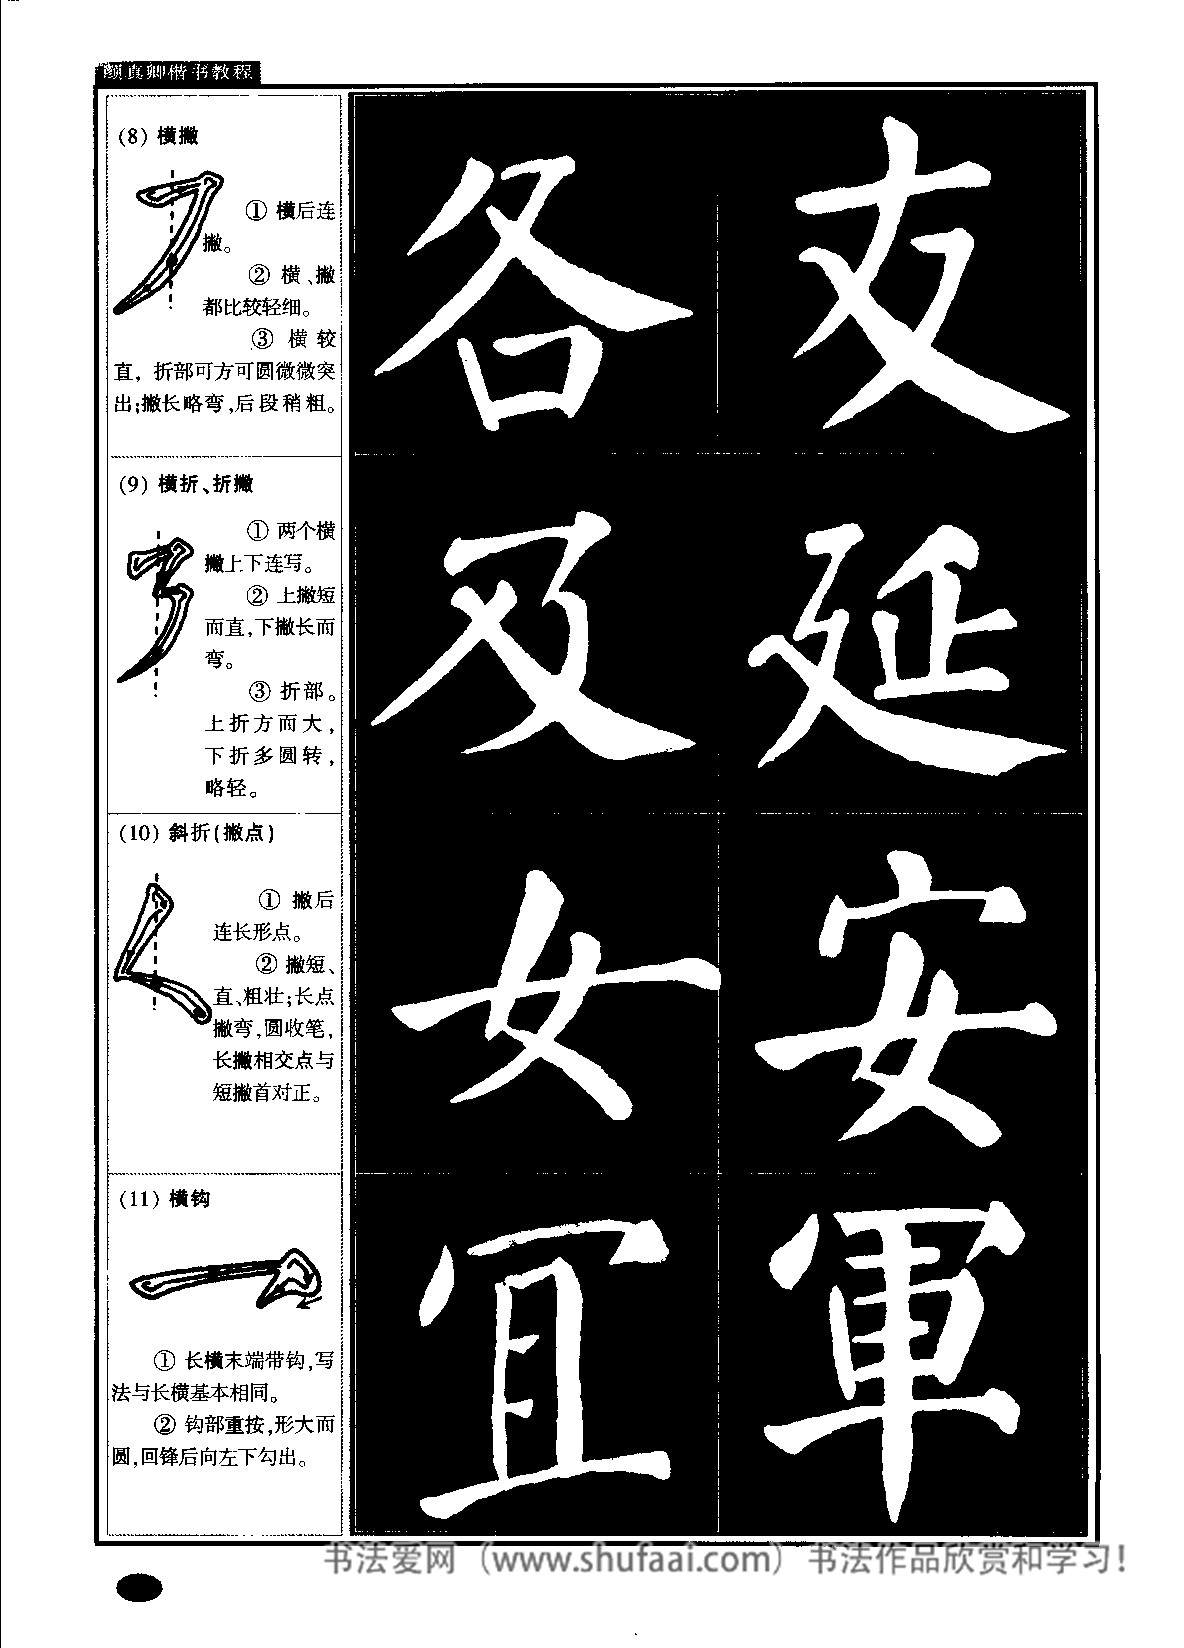 颜真卿楷书教程
(8) 横撇
① 横后连
撇。
② 横、撇
都比较轻细。
③ 横较
直，折部可方可圆微微突
出;撇长略弯,后段稍粗。
各 友
(9) 横折、折撇
① 两个横
撇上下连写。
② 上撇短
而直,下撇长而
弯。
③ 折部。
上折方而大,
下折多圆转,
略轻。
及 延
(10) 斜折(撇点)
① 撇后
连长形点。
② 撇短、
直、粗壮;长点
撇弯,圆收笔,
长撇相交点与
短撇首对正。
女 安
(11) 横钩
① 长横末端带钩,写
法与长横基本相同。
② 钩部重按,形大而
圆,回锋后向左下勾出。
宜 軍
书法爱网（www.shufaai.com）书法作品欣赏和学习！